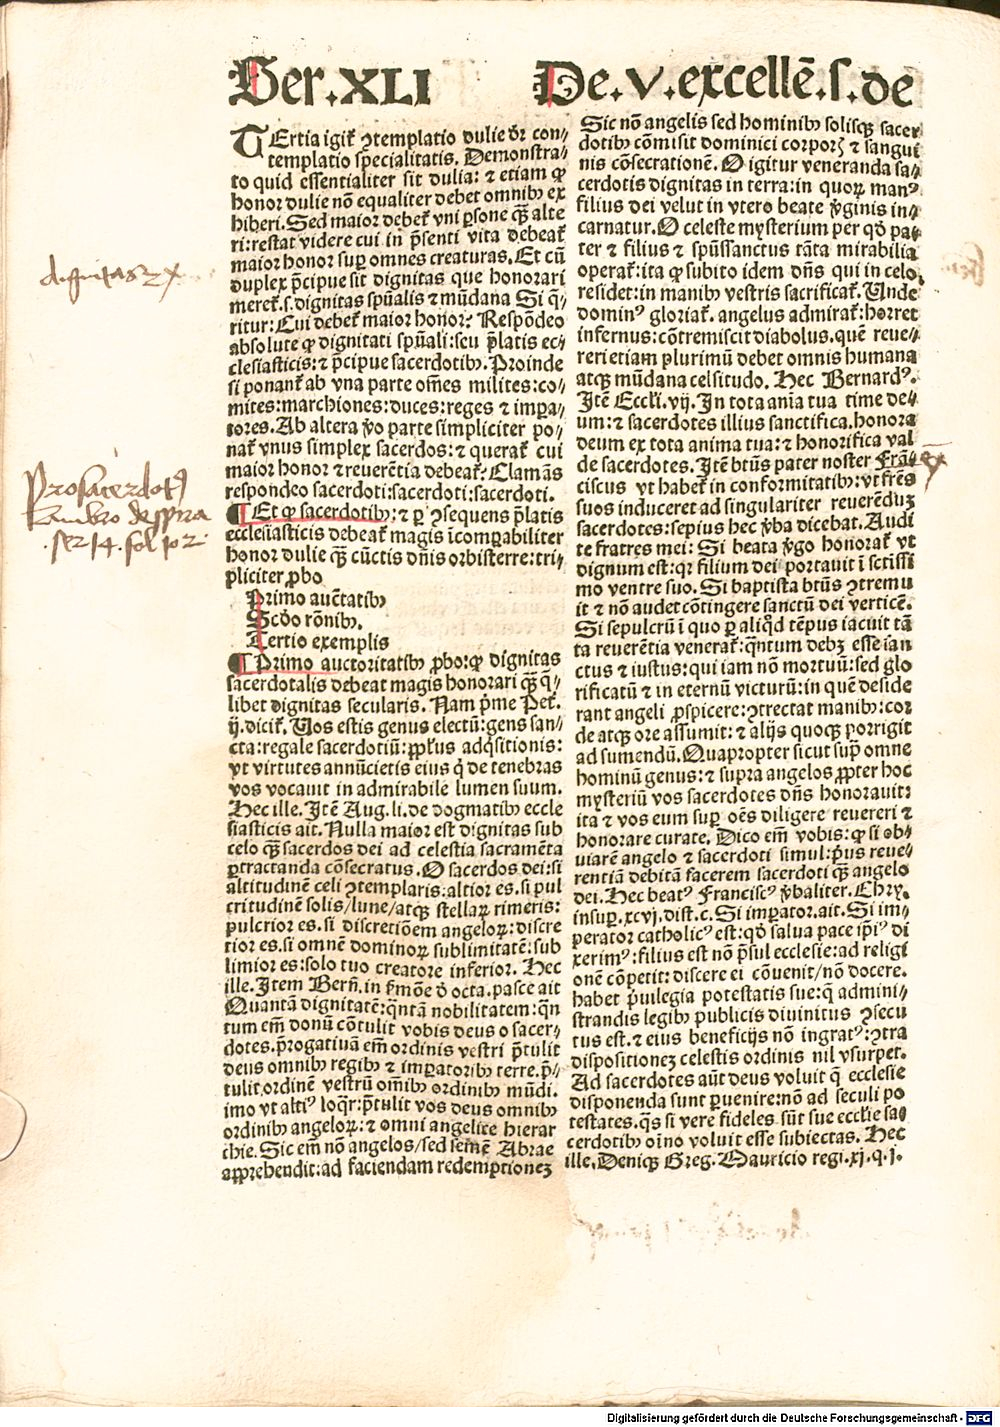 Ser.XLI De.v.excellē.s.de
TErtia igit᷑ ꝯtemplatio dulie dr̄ con⸗
templatio specialitatis. Demonstra⸗
to quid essentialiter sit dulia: ⁊ etiam ꝙ
honor dulie nō equaliter debet omnibꝫ ex
hiberi. Sed maior debet᷑ vni ꝑsone qꝫ̄ alte
ri: restat videre cui in p̄senti vita debeat᷑
maior honor suꝑ omnes creaturas. Et cū
duplex p̄cipue sit dignitas que honorari
meret᷑.s. dignitas spūalis ⁊ mūdana Si q̄⸗
ritur: Cui debet᷑ maior honor? Respōdeo
absolute ꝙ dignitati spūali: seu p̄latis ec⸗
clesiasticis: ⁊ p̄cipue sacerdotibꝫ. Proinde
si ponant᷑ ab vna parte om̄es milites: co⸗
mites: marchiones: duces: reges ⁊ imꝑa⸗
tores. Ab altera v̄o parte simpliciter po⸗
nat᷑ vnus simplex sacerdos: ⁊ querat᷑ cui
maior honor ⁊ reuerētia debeat᷑: Clamās
respondeo sacerdoti: sacerdoti: sacerdoti.
¶ Et ꝙ sacerdotibꝫ: ⁊ ꝑ ꝯsequens p̄latis
ecclesiasticis debeat᷑ magis īcomꝑabiliter
honor dulie qꝫ̄ cūctis dn̄is orbisterre: tri⸗
pliciter ꝓbo
Primo auc̄tatibꝫ
Scd̄o rōnibꝫ.
Tertio exemplis
¶ Primo auctoritatibꝫ ꝓbo: ꝙ dignitas
sacerdotalis debeat magis honorari qꝫ̄ q̄⸗
libet dignitas secularis. Nam p̄me Pet᷑.
ij. dicit᷑. Vos estis genus electū: gens san⸗
cta: regale sacerdotiū: pp̄l̄us adq̄sitionis:
vt virtutes annūcietis eius q̇ de tenebras
vos vocauit in admirabile lumen suum.
Hec ille. Itē Aug. li. de dogmatibꝫ eccle
siasticis ait. Nulla maior est dignitas sub
celo qꝫ̄ sacerdos dei ad celestia sacramēta
ꝑtractanda cōsecratus. O sacerdos dei: si
altitudinē celi ꝯtemplaris: altior es. si pul
critudinē solis/lune/atqꝫ stellaꝝ rimeris:
pulcrior es. si discretiōem angeloꝝ: discre
tior es. si omnē dominoꝝ sublimitatē: sub
limior es: solo tuo creatore inferior. Hec
ille. Item Berñ. in ẜmōe ð octa. pasce ait
Quantā dignitatē: qn̄tā nobilitatem: qn̄
tum em̄ donū cōtulit vobis deus o sacer⸗
dotes. p̄rogatiuā em̄ ordinis vestri p̄tulit
deus omnibꝫ regibꝫ ⁊ imꝑatoribꝫ terre. p̄⸗
tulit ordinē vestrū om̄ibꝫ ordinibꝫ mūdi.
imo vt altiꝰ loqr̄: p̄tulit vos deus omnibꝫ
ordinibꝫ angeloꝝ: ⁊ omni angelice hierar
chie. Sic em̄ nō angelos/sed semē Abrae
apprehendit: ad faciendam redemptionez
Sic nō angelis sed hominibꝫ solisqꝫ sacer
dotibꝫ cōmisit dominici corporꝭ ⁊ sangui
nis cōsecrationē. O igitur veneranda sa⸗
cerdotis dignitas in terra: in quoꝝ manꝰ
filius dei velut in vtero beate v̄ginis in⸗
carnatur. O celeste mysterium per qd̄ pa⸗
ter ⁊ filius ⁊ spūssanctus tāta mirabilia
operat᷑: ita ꝙ subito idem dn̄s qui in celo
residet: in manibꝫ vestris sacrificat᷑. Unde
dominꝰ gloriat᷑. angelus admirat᷑: horret
infernus: cōtremiscit diabolus. quē reue⸗
reri etiam plurimū debet omnis humana
atqꝫ mūdana celsitudo. Hec Bernardꝰ.
Itē Eccl̄i. vij. In tota anīa tua time de⸗
um: ⁊ sacerdotes illius sanctifica. honora
deum ex tota anima tua: ⁊ honorifica val
de sacerdotes. Itē btūs pater noster Frā⸗
ciscus vt habet᷑ in conformitatibꝫ: vt fr̄es
suos induceret ad singulariter reuerēduz
sacerdotes: sepius hec v̄ba dicebat. Audi
te fratres mei: Si beata v̄go honorat᷑ vt
dignum est: qꝛ filium dei portauit ī sc̄tissi
mo ventre suo. Si baptista btūs ꝯtremu
it ⁊ nō audet cōtingere sanctū dei verticē.
Si sepulcrū ī quo ꝑ aliq̇d tēpus iacuit tā
ta reuerētia venerat᷑: qn̄tum debꝫ esse san
ctus ⁊ iustus: qui iam nō mortuū: sed glo
rificatū ⁊ in eternū victurū: in quē deside
rant angeli ꝓspicere: ꝯtrectat manibꝫ: cor
de atqꝫ ore assumit: ⁊ alijs quoqꝫ porrigit
ad sumendū. Quapropter sicut suꝑ omne
hominū genus: ⁊ supra angelos ꝓpter hoc
mysteriū vos sacerdotes dn̄s honorauit:
ita ⁊ vos eum suꝑ oēs diligere reuereri ⁊
honorare curate. Dico em̄ vobis: ꝙ si ob⸗
uiarē angelo ⁊ sacerdoti simul: p̄us reue⸗
rentiā debitā facerem sacerdoti qꝫ̄ angelo
dei. Hec beatꝰ Franciscꝰ v̄baliter. Chry.
insuꝑ. xcvj. dist. c. Si imꝑator. ait. Si im⸗
perator catholicꝰ est: qd̄ salua pace ip̄iꝰ di
xerimꝰ: filius est nō p̄sul ecclesie: ad religi
onē cōpetit: discere ei cōuenit/nō docere.
habet p̄uilegia potestatis sue: q̄ admini⸗
strandis legibꝫ publicis diuinitus ꝯsecu
tus est. ⁊ eius beneficijs nō ingratꝰ: ꝯtra
dispositionez celestis ordinis nil vsurpet.
Ad sacerdotes aūt deus voluit q̄ ecclesie
disponenda sunt ꝑuenire: nō ad seculi po
testates. qs̄ si vere fideles sūt sue eccl̄ie sa⸗
cerdotibꝫ oīno voluit esse subiectas. Hec
ille. Deniqꝫ Greg. Mauricio regi. xj. q. j.
Digitalisierung gefördert durch die Deutsche Forschungsgemeinschaft - DFG